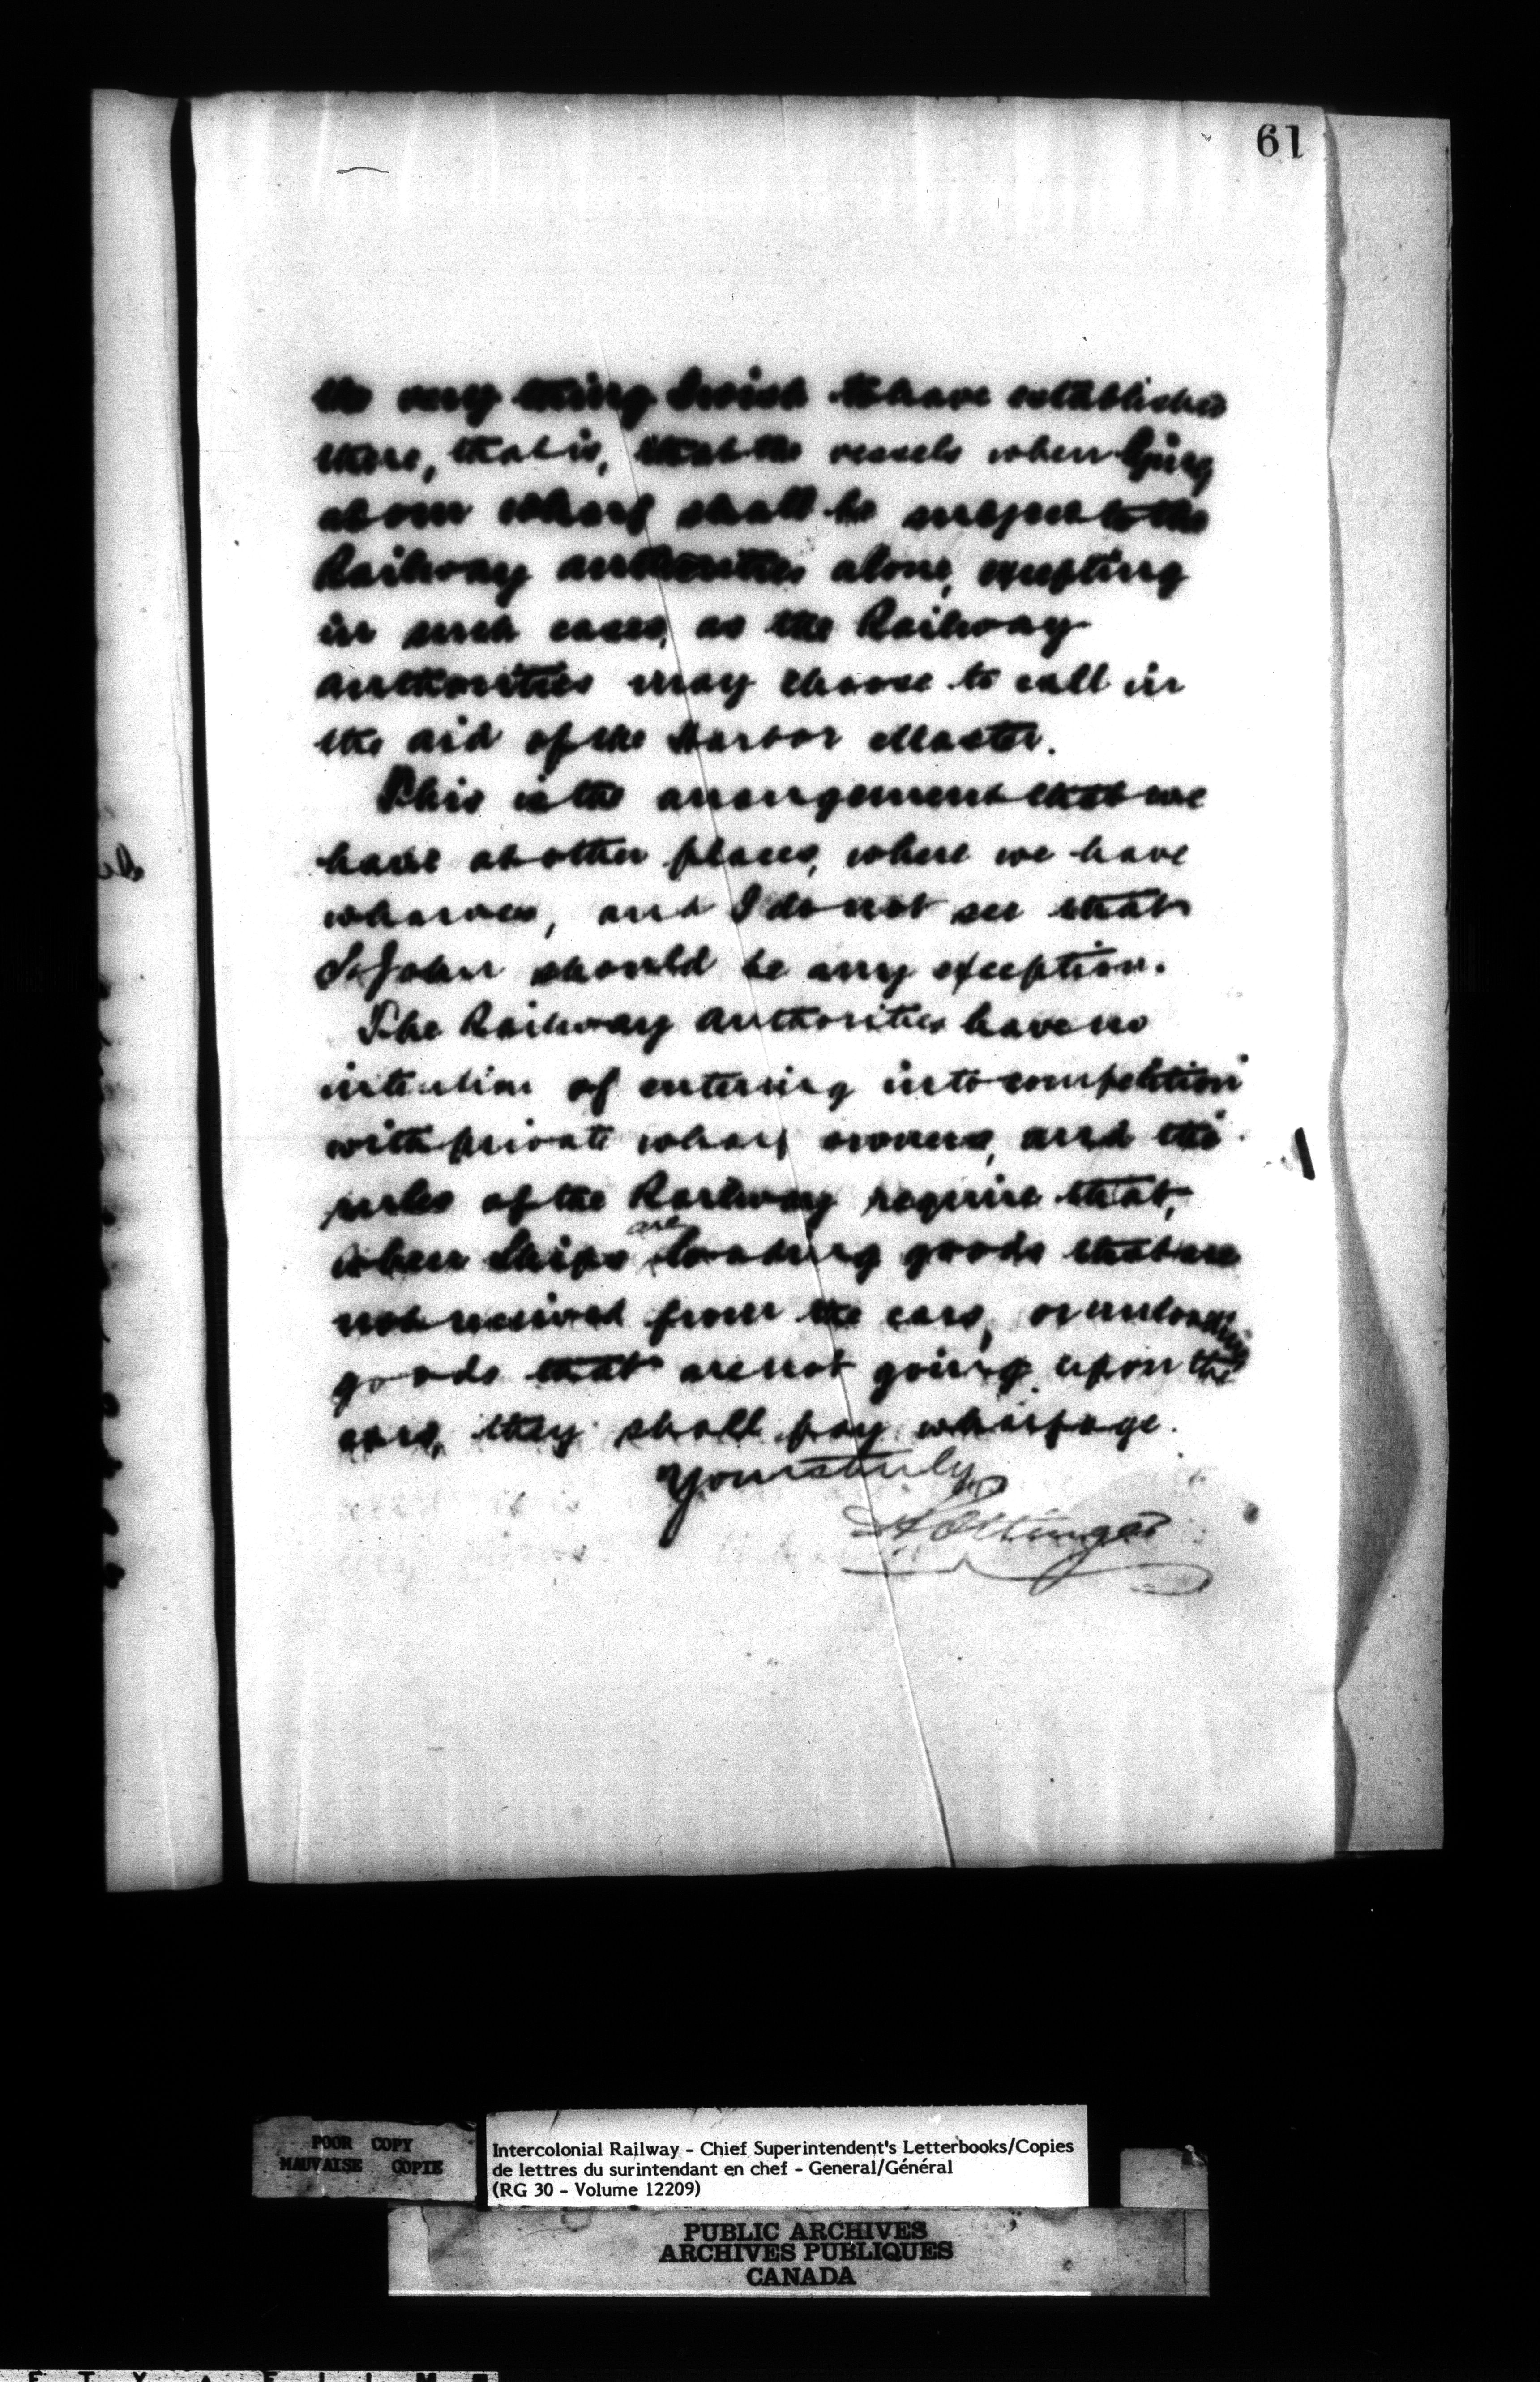 61
the very thing I wish to have established
there, that is, that the vessels when lying
at our wharf shall be subject to the
Railway authorities alone, excepting
in such cases, as the Railway
authorities may choose to call in
the aid of the Harbor Master.
This is the arrangement that we
have at other places, where we have
wharves, and I do not see that
St John should be any exception.
The Railway authorities have no
intention of entering into competition
with private wharf owners, and the
rules of the Railway require that,
when Ships are loading goods that are
not received from the cars, or unloading
goods that are not going upon the
cars, they shall pay wharfage.
Yours truly
D Pottinger
POOR COPY
MAUVAISE COPIE
Intercolonial Railway - Chief Superintendent's Letterbooks/Copies
de lettres du surintendant en chef - General/Général
(RG 30 - Volume 12209)
PUBLIC ARCHIVES
ARCHIVES PUBLIQUES
CANADA